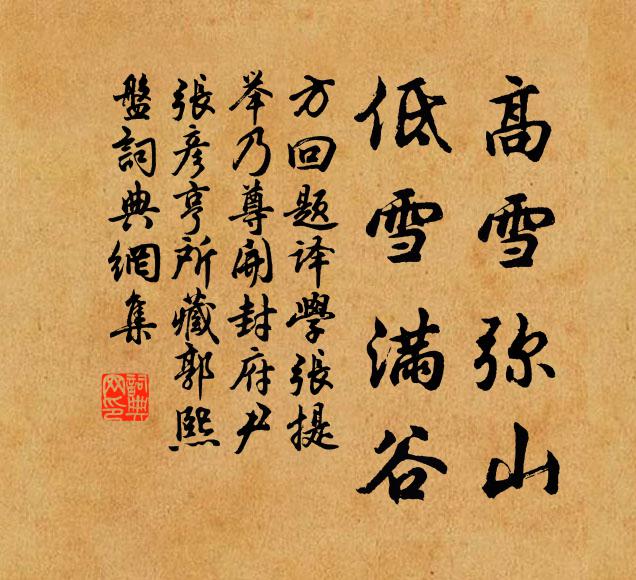 高雪弥山
低雪满谷
方回题译學張提
举乃尊開封府尹
張彦亨所藏郭熙
盤詞典網集
詞典
网印